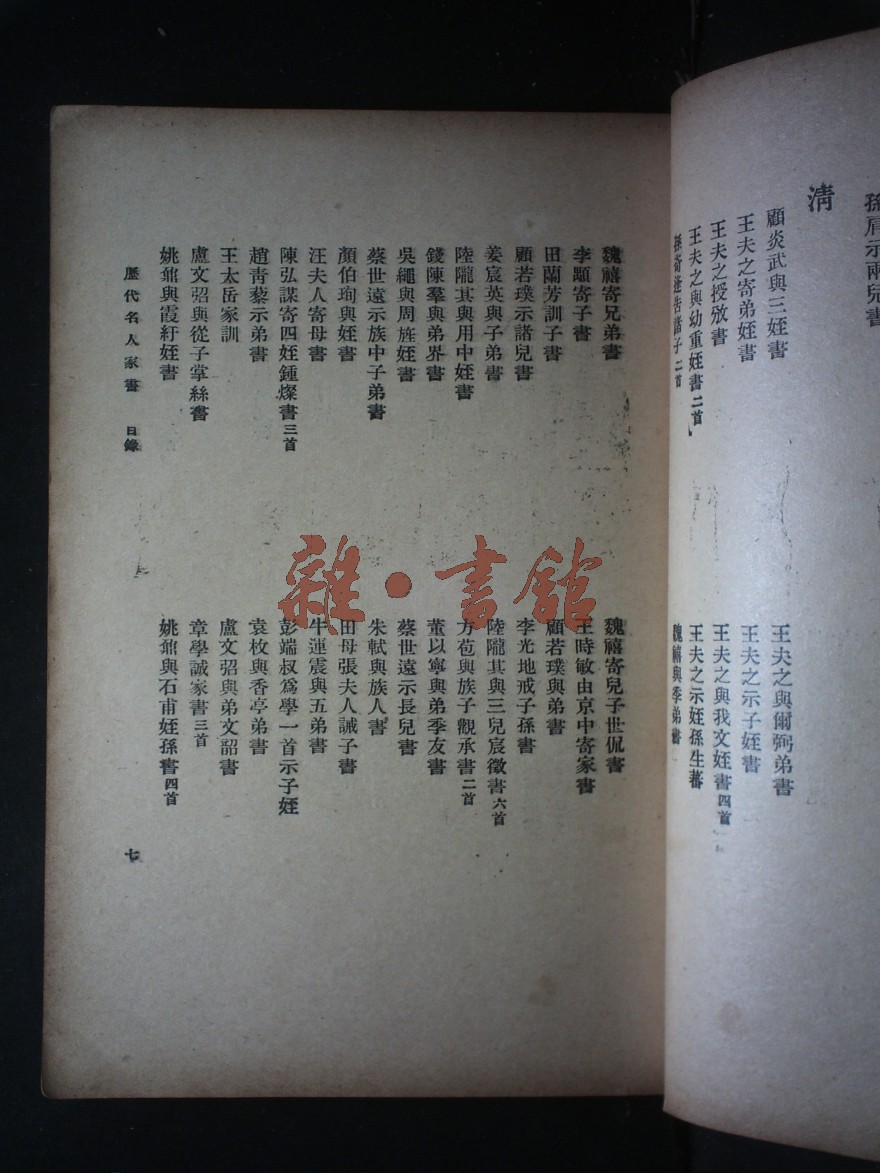 孫肩示兩兒書
清
顧炎武與三姪書
王夫之寄弟姪書
王夫之授攽書
王夫之與幼重姪書 二首
孫奇逢告諸子 二首
王夫之與爾弼弟書
王夫之示子姪書
王夫之與我文姪書 四首
王夫之示姪孫生蕃
魏禧與季弟書
魏禧寄兄弟書
李顒寄子書
田蘭芳訓子書
顧若璞示諸兒書
姜宸英與子弟書
陸隴其與用中姪書
錢陳羣與弟界書
吳繩與周旌姪書
蔡世遠示族中子弟書
顏伯珣與姪書
汪夫人寄母書
陳弘謀寄四姪鍾燦書 三首
趙青藜示弟書
王太岳家訓
盧文弨與從子掌絲書
姚鼐與霞紆姪書
魏禧寄兒子世侃書
王時敏由京中寄家書
顧若璞與弟書
李光地戒子孫書
陸隴其與三兒宸徵書 六首
方苞與族子觀承書 二首
董以寧與弟季友書
蔡世遠示長兒書
朱軾與族人書
田母張夫人誡子書
牛運震與五弟書
彭端叔爲學一首示子姪
袁枚與香亭弟書
盧文弨與弟文韶書
章學誠家書 三首
姚鼐與石甫姪孫書 四首
歷代名人家書 目錄
七
雜·書館